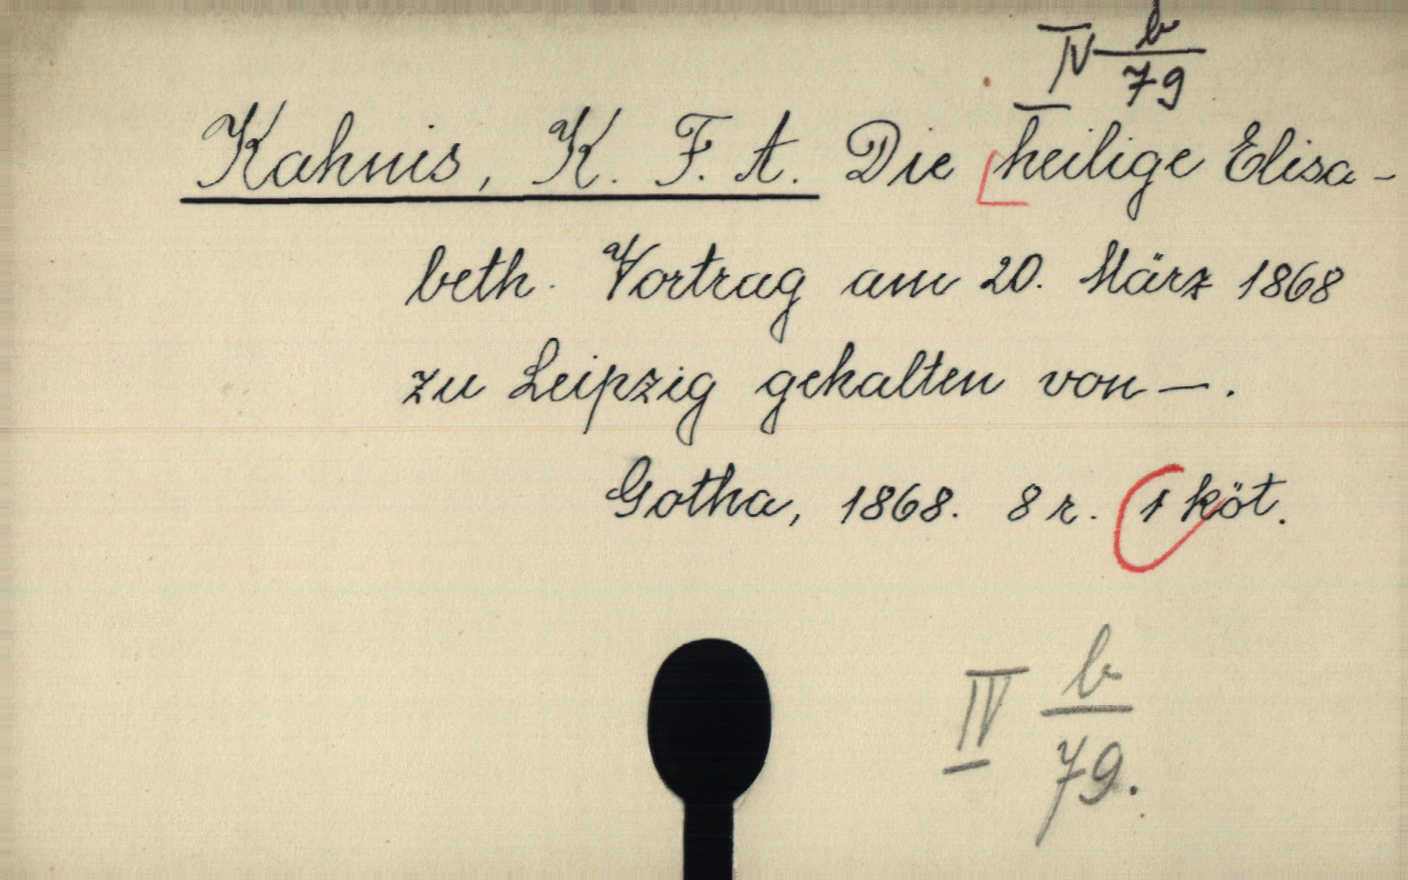 IV b/79
Kahnis, K. F. A. Die heilige Elisa-
beth. Vortrag am 20. März 1868
zu Leipzig gehalten von —.
Gotha, 1868. 8 r. 1 köt.
IV b/79.